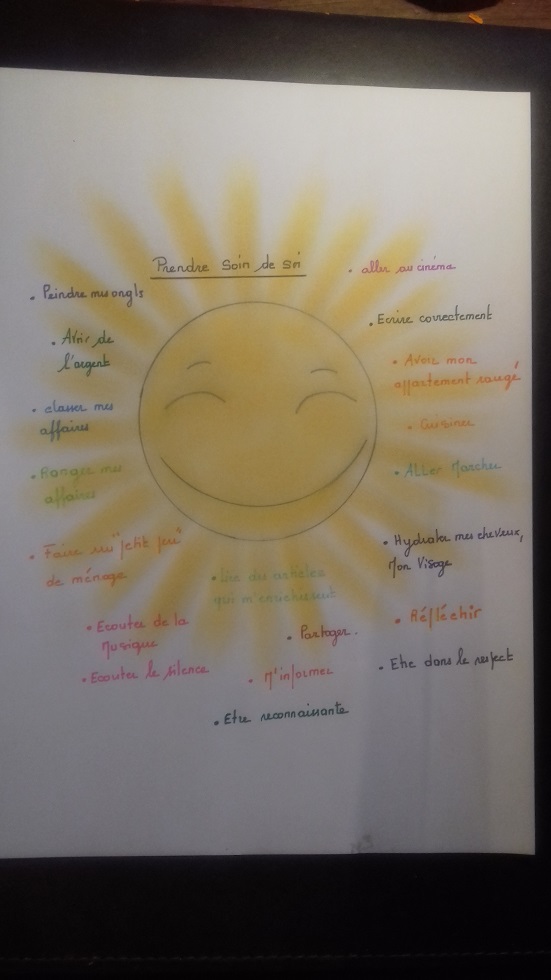 Prendre Soin de soi
. aller au cinéma
. Peindre mes ongls
. Ecrire correctement
. Avoir de
l'argent
. Avoir mon
appartement rangé
. classer mes
affaires
. Cuisiner
. Ranger mes
affaires
. Aller Marcher
. Faire un "petit peu"
de ménage
. Hydrater mes cheveux,
Mon Visage
. Lire des articles
qui m'enrichissent
. Ecouter de la
Musique
. Partager.
. Réfléchir
. Ecouter le silence
. M'informer
. Etre dans le respect
. Etre reconnaissante